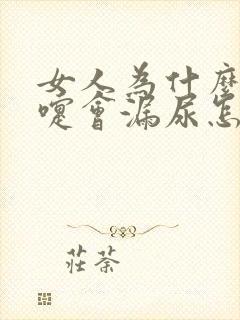 女人為什麼
嚏會漏尿怎
莊荼